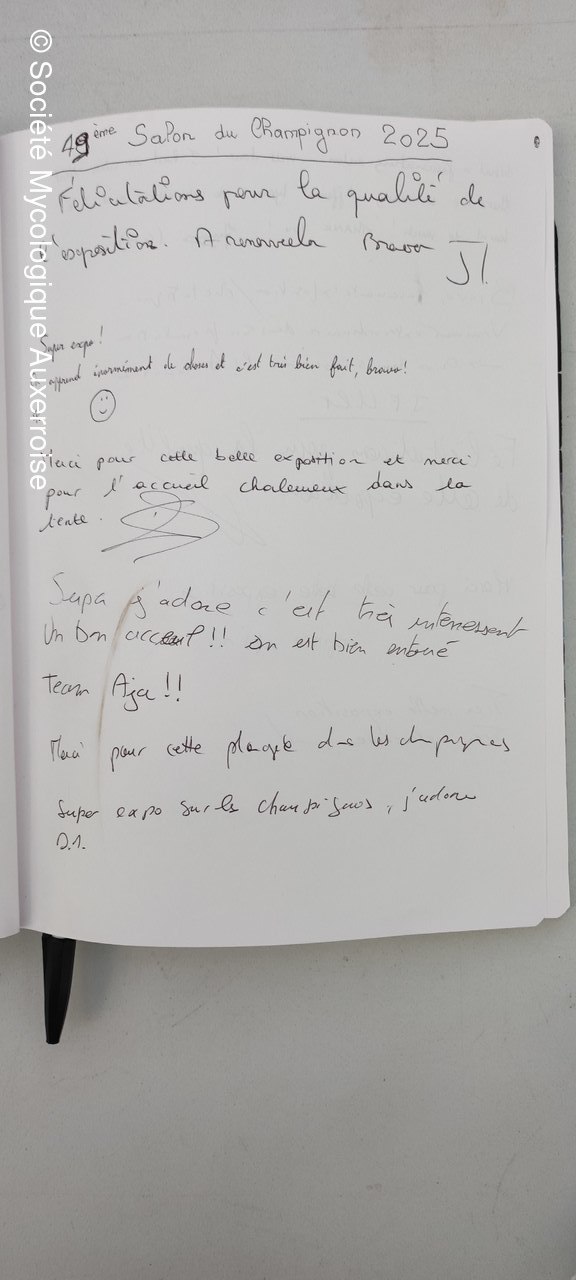 © Société Mycologique Auxerroise
49ème Salon du Champignon 2025
Félicitations pour la qualité de
l'exposition. A renouveler Bravo
Super expo !
apprend énormément de choses et c'est très bien fait, bravo !
Merci pour cette belle exposition et merci
pour l'accueil chaleureux dans la
tente.
Supa j'adore c'est très interessent
Un bon !! on est bien entouré
Team Aja !!
Merci pour cette plongée dans les champignons
Super expo sur les champignons, j'adore
D.1.